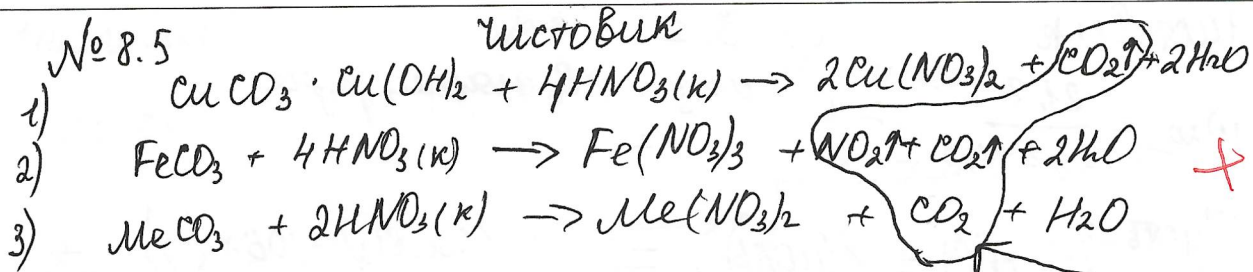 № 8.5
Чистовик
1) CuCO3 · Cu(OH)2 + 4HNO3(к) → 2Cu(NO3)2 + CO2↑ + 2H2O
2) FeCO3 + 4HNO3(к) → Fe(NO3)3 + NO2↑ + CO2↑ + 2H2O
3) MeCO3 + 2HNO3(к) → Me(NO3)2 + CO2 + H2O